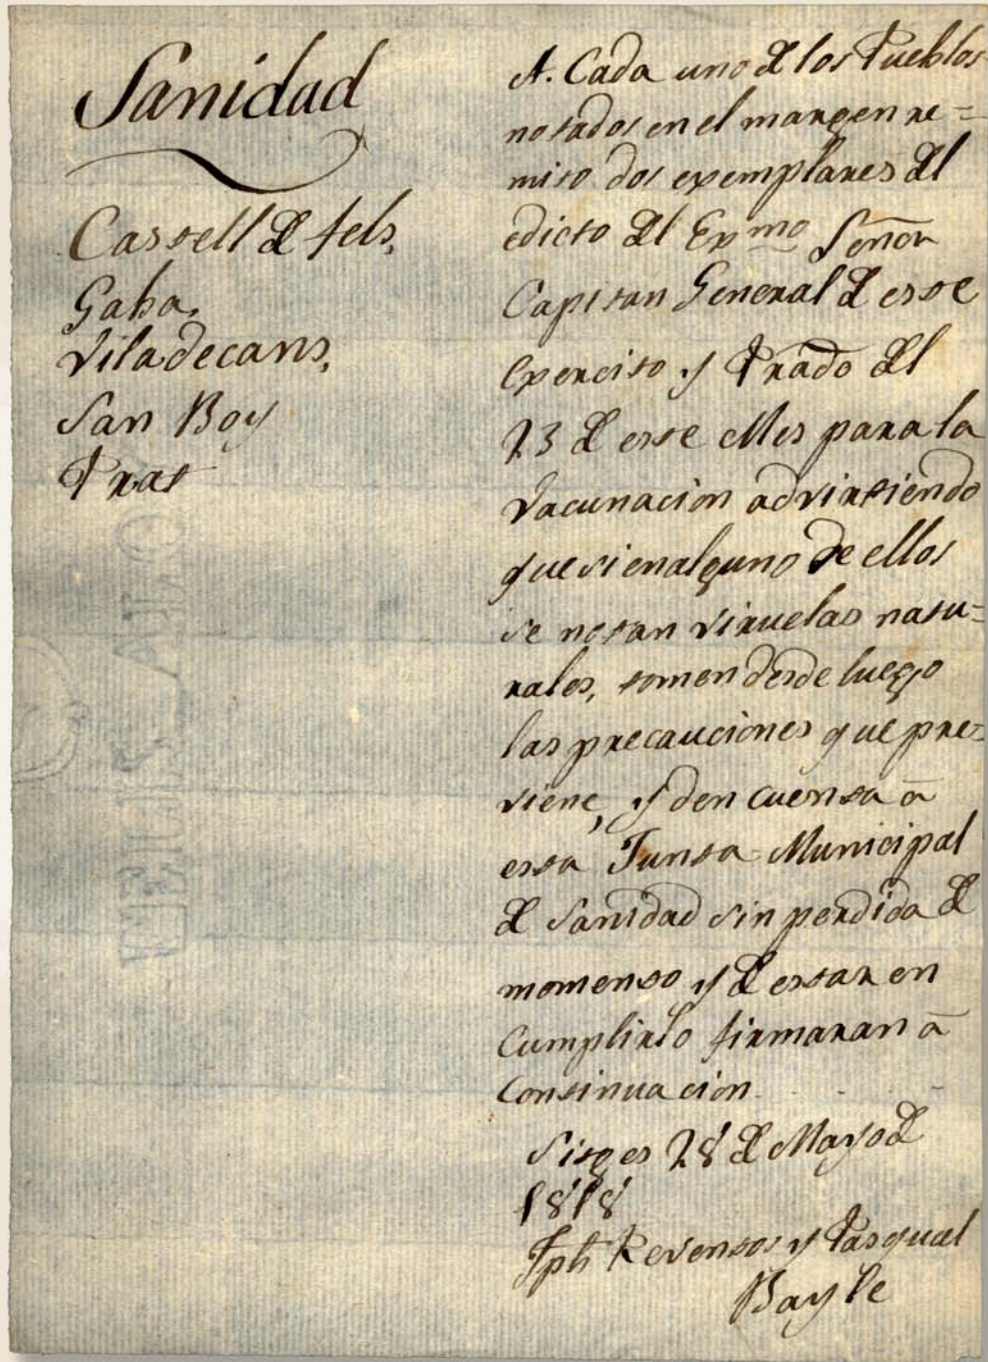 Sanidad
Castell de fels,
Gaba,
Viladecans,
San Boy
Prat
A. Cada uno de los Pueblos
notados en el margen re=
mito dos exemplares del
edicto del Exmo Señor
Capitan General de este
Exercito y Prado del
23 de este Mes para la
Vacunacion advirtiendo
que si en alguno de ellos
se notan viruelas natu=
rales, tomen desde luego
las precauciones que pre=
viene, y den cuenta â
esta Junta Municipal
de Sanidad sin perdida de
momento y de estar en
Cumplirlo firmaran â
Continuacion
Sitges 28 de Mayo de
1818
Jph Reventos y Pasqual
Bayle